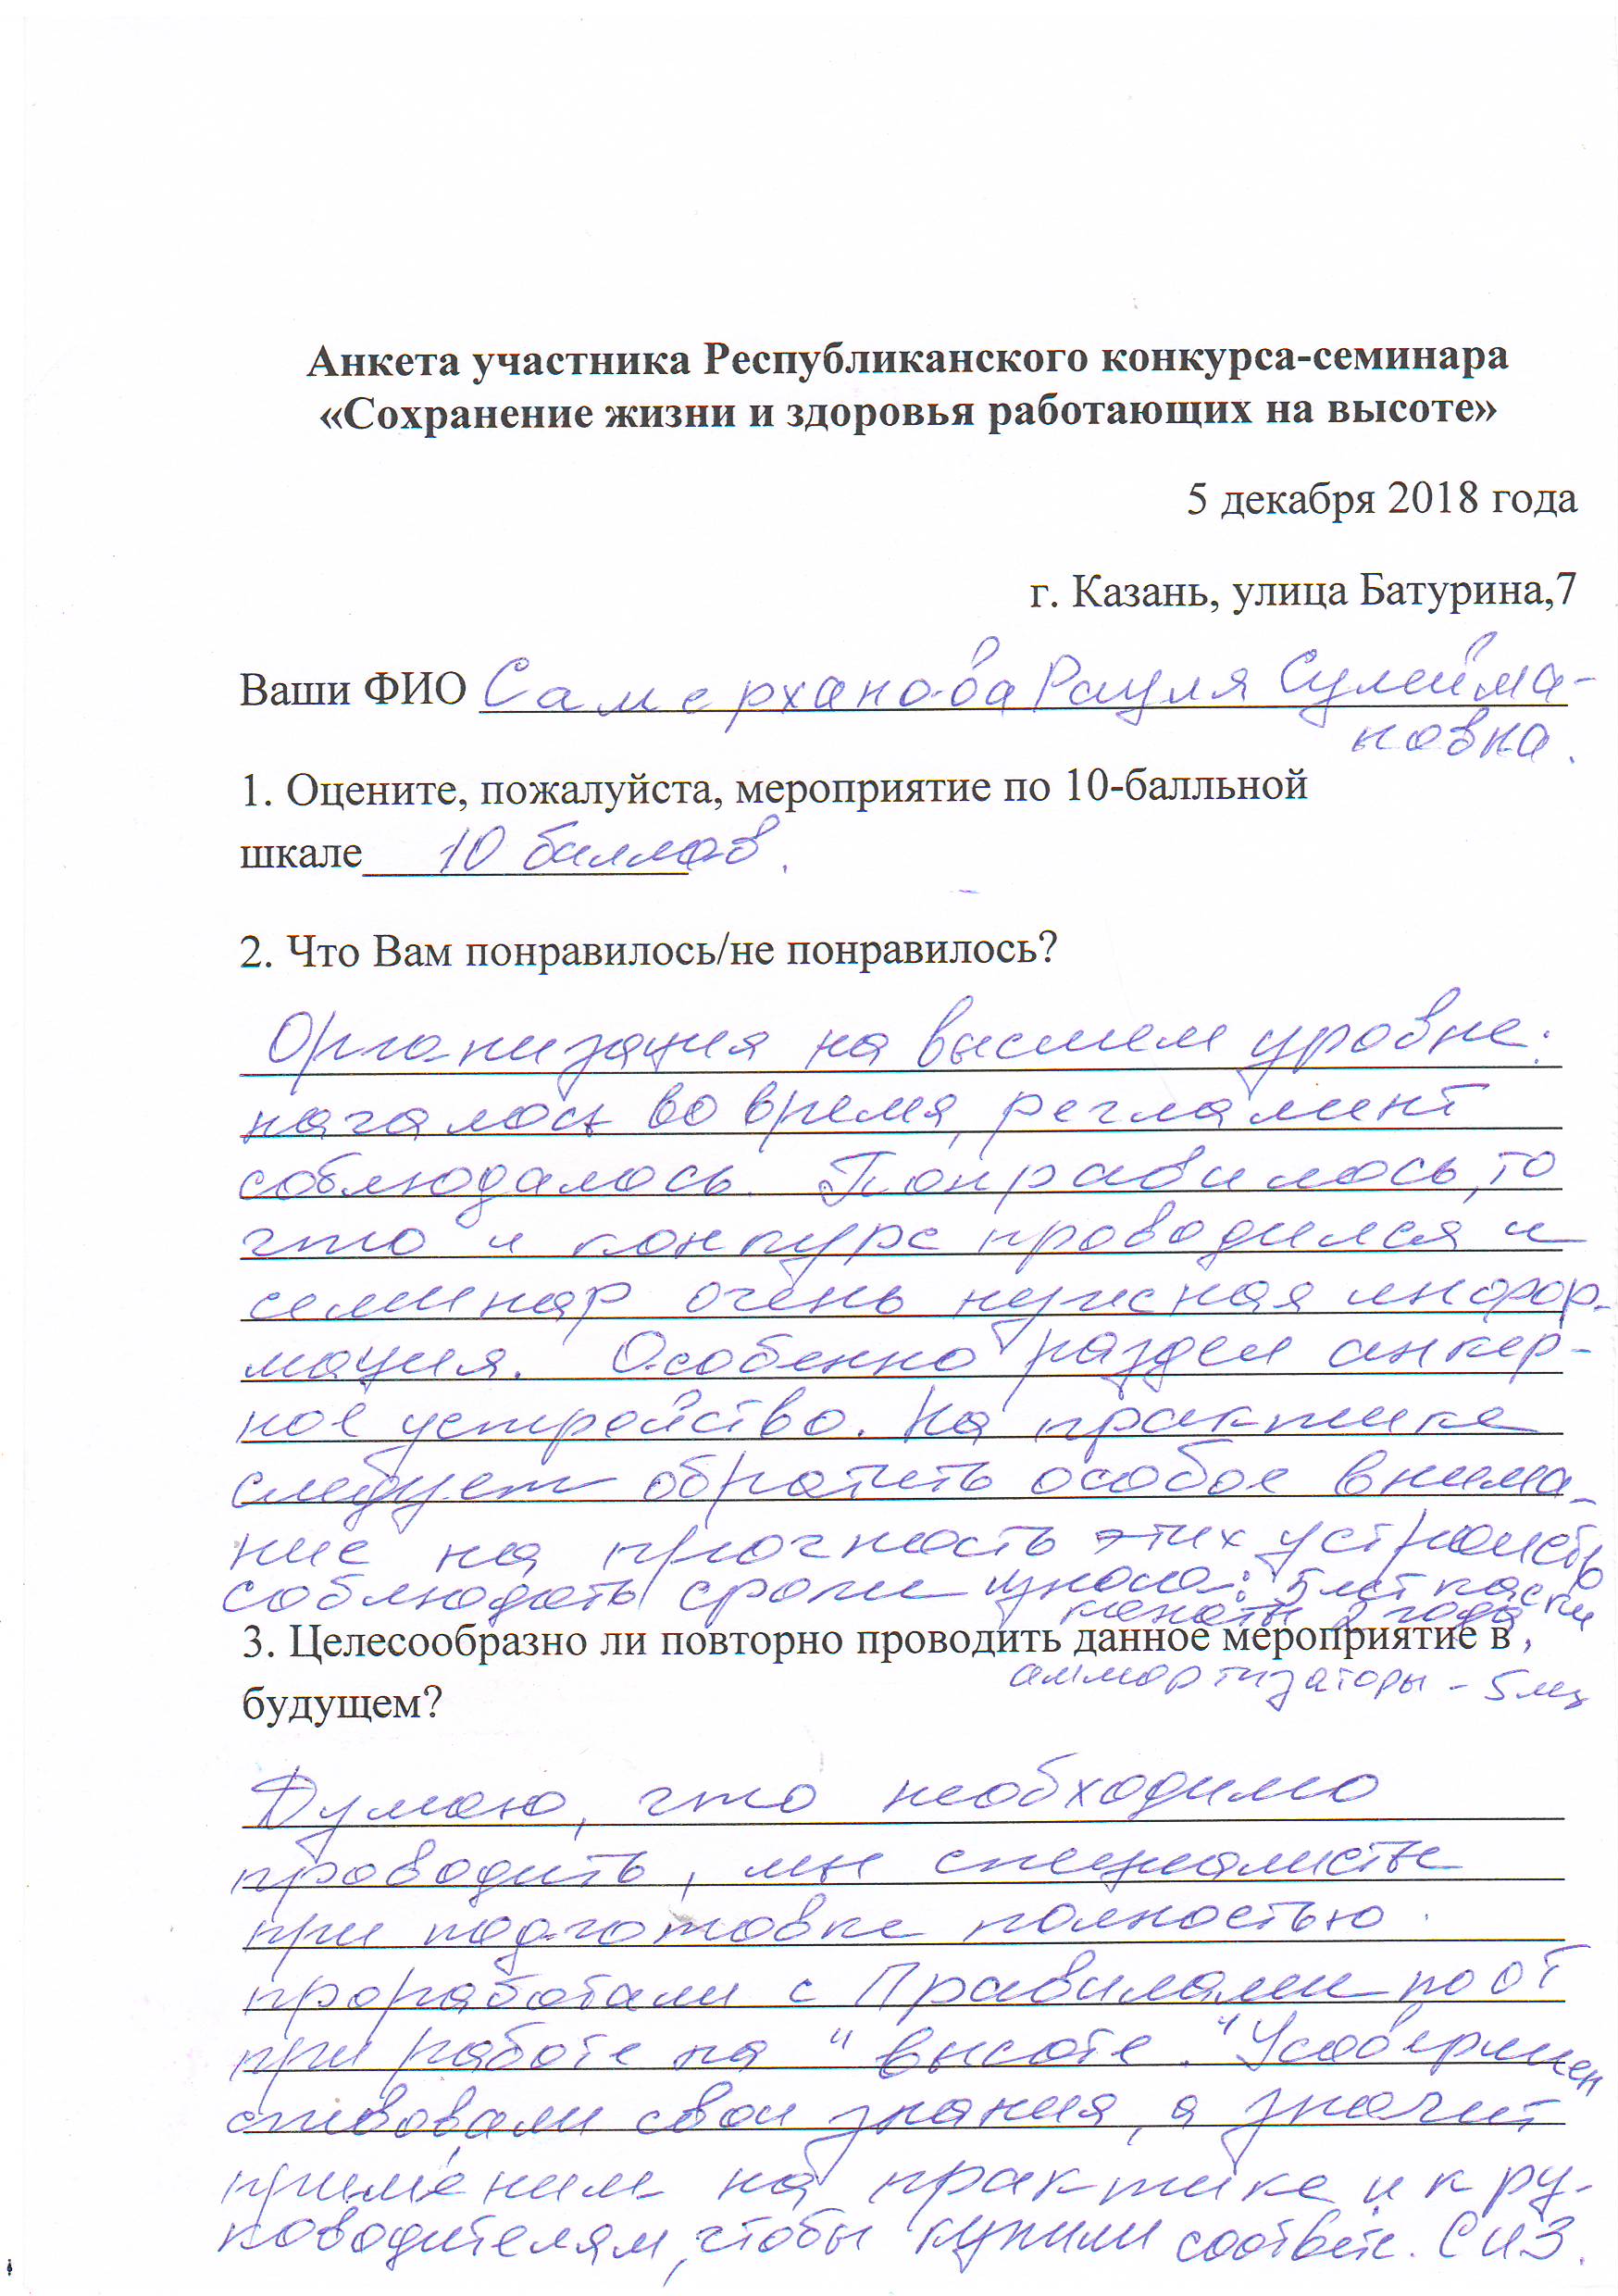 Анкета участника Республиканского конкурса-семинара
«Сохранение жизни и здоровья работающих на высоте»
5 декабря 2018 года
г. Казань, улица Батурина,7
Ваши ФИО Самерханова Рауля Сулейма-
новна.
1. Оцените, пожалуйста, мероприятие по 10-балльной
шкале 10 баллов.
2. Что Вам понравилось/не понравилось?
Организация на высшем уровне.
началось во время, регламент
соблюдалось. Понравилось, то
что и конкурс проводился и
семинар очень нужная инфор-
мация. Особенно раздел анкер-
ное устройство. На практике
следует обратить особое внима-
ние на прочность этих устройств
соблюдать сроки износа: 5 лет каски
канаты 2 года,
3. Целесообразно ли повторно проводить данное мероприятие в
аммортизаторы - 5 лет
будущем?
Думаю, что необходимо
проводить, мы специалисты
при подготовке полностью
проработали с Правилами по ОТ
при работе на "высоте." Усовершен
ствовали свои знания, а значит
применим на практике и к ру-
ководителям, чтобы купили соответ. СИЗ.